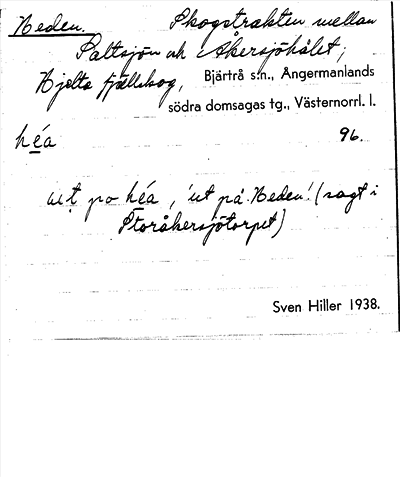 Heden. Skogstrakten mellan
Saltsjön och Åkersjöhålet;
Hjelta fjällskog, Bjärtrå s:n., Ångermanlands
södra domsagas tg., Västernorrl. l.
héa 96.
ut po héa, 'ut på Heden'. (sagt i
Storåkersjötorpet)
Sven Hiller 1938.